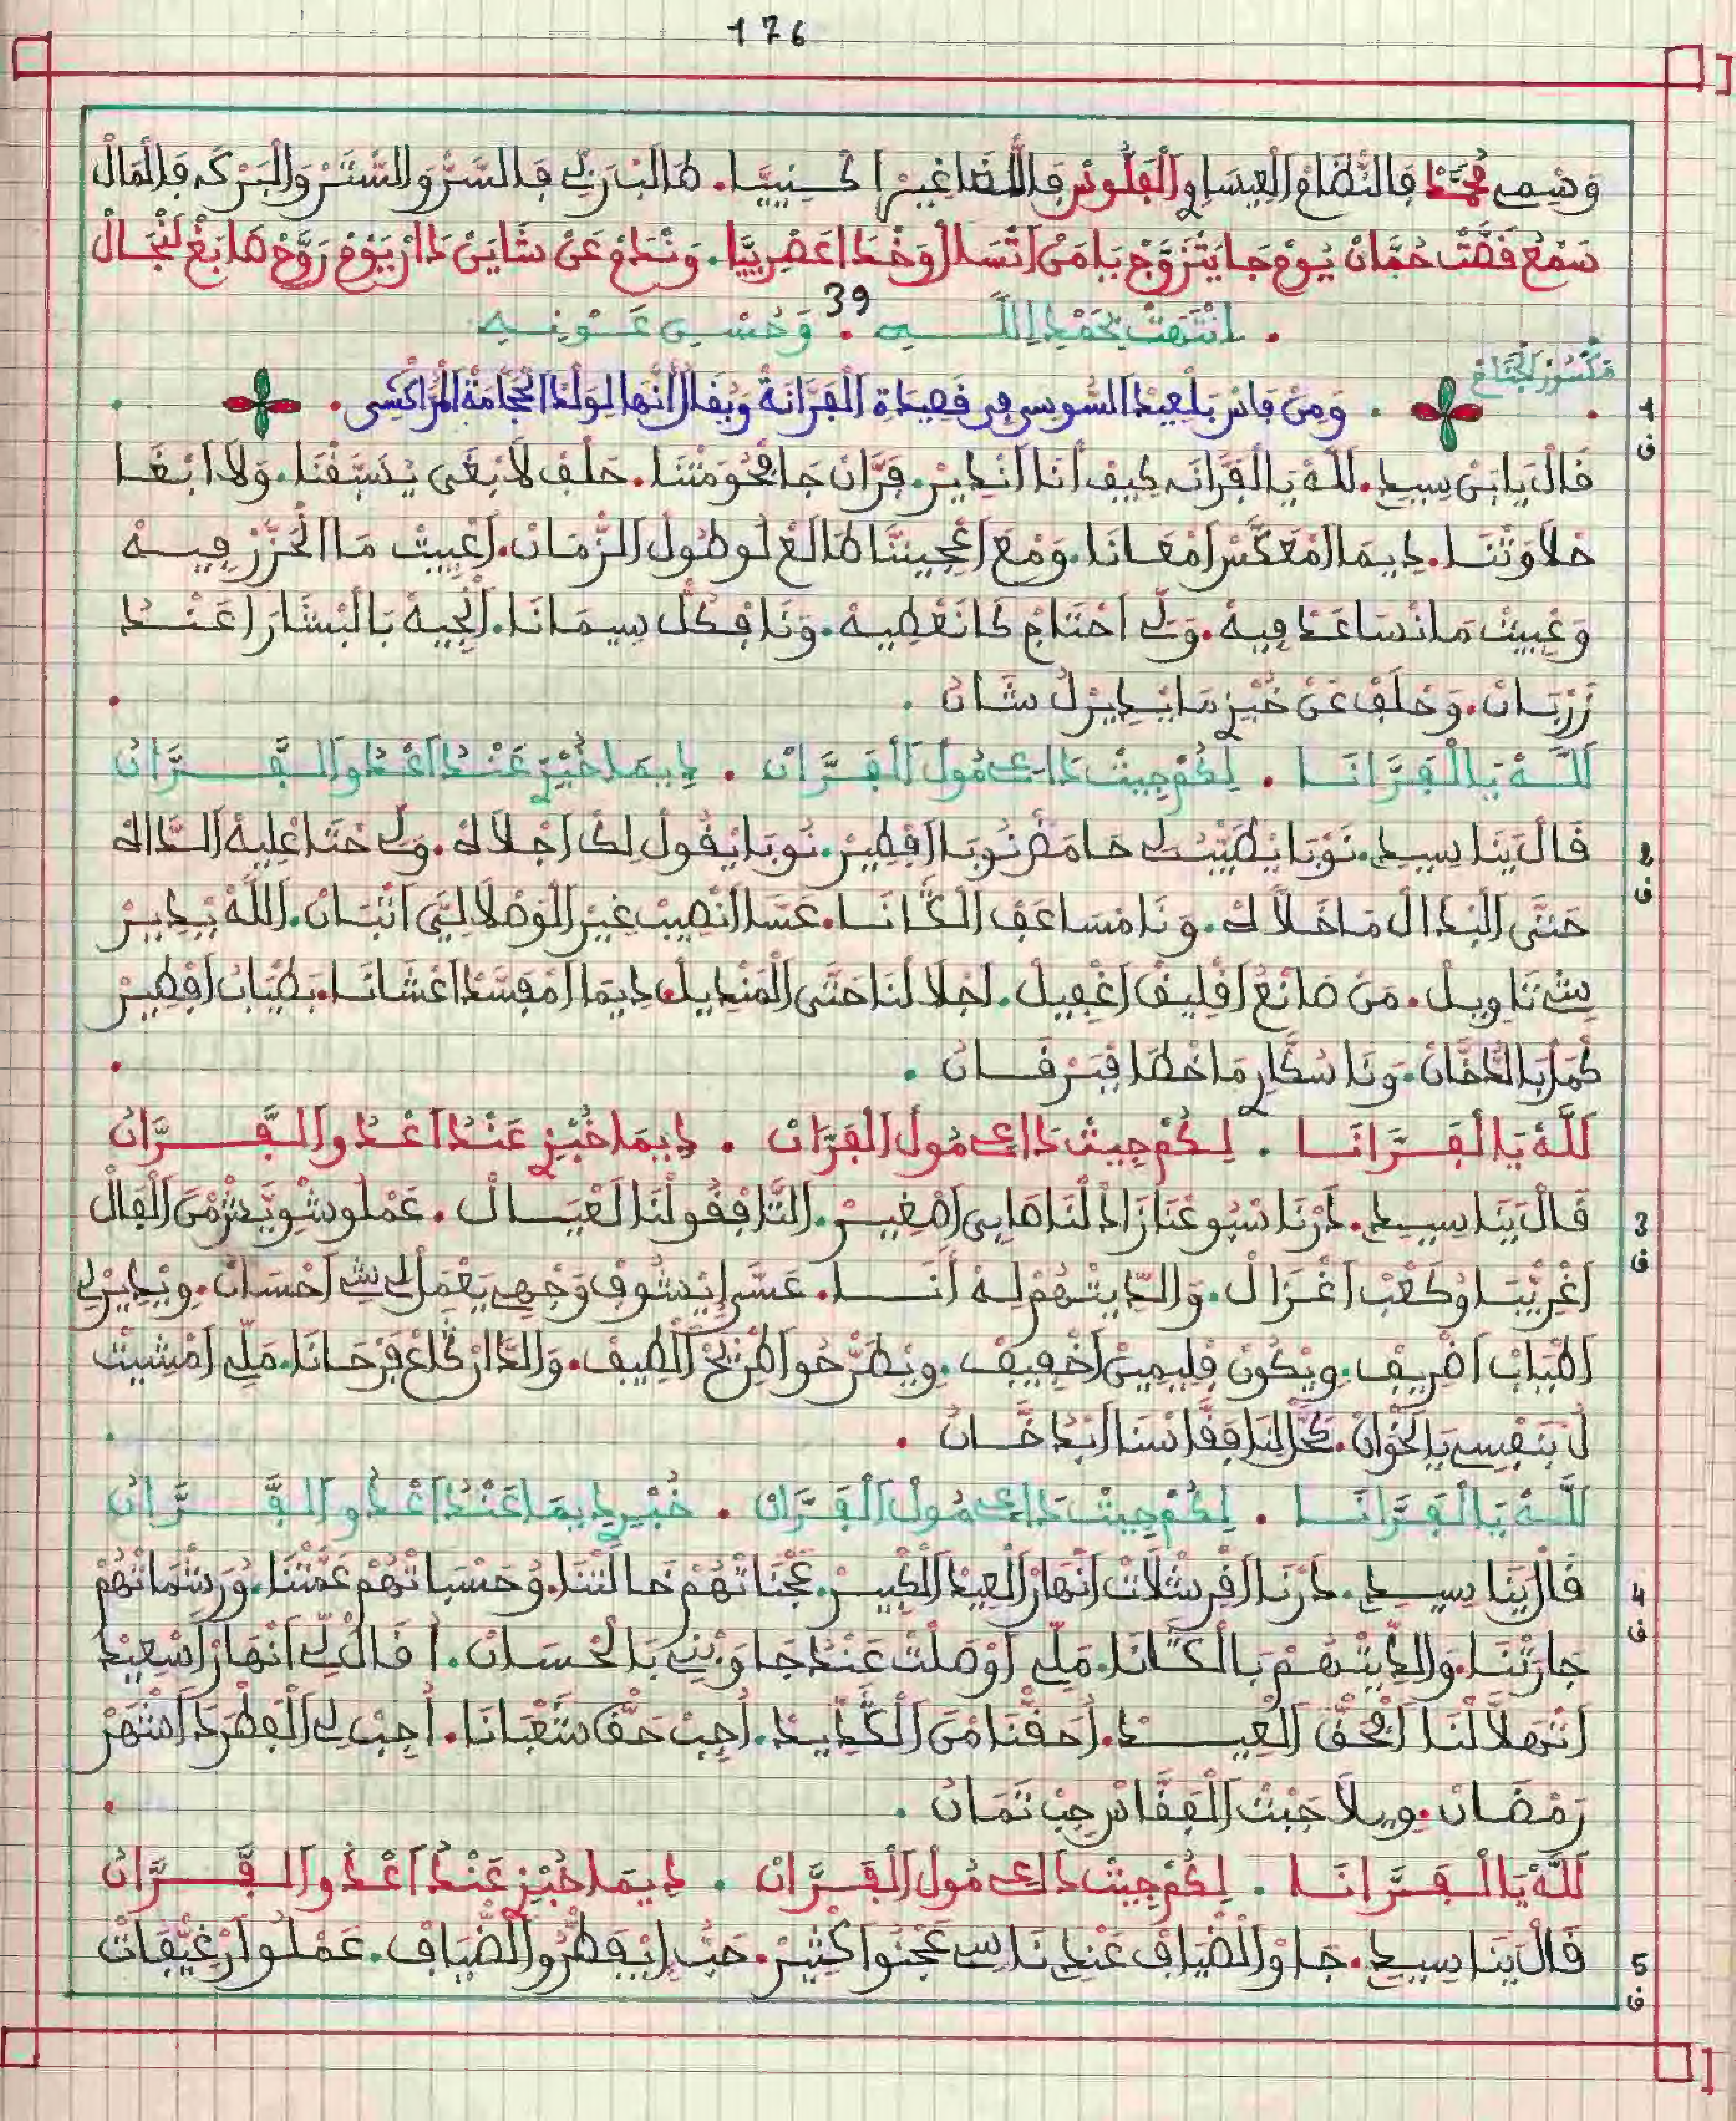 176
وَسْمِي مُحَمَّدْ فَالنْظَامْ الْعِيسَاوِ وَالْفَلُّوسْ فَاللّْضَاغِيرْ ا كْنِيَّا. طَالَبْ رَبِّي فَالسَّرّْ وَالسّْتَرْ وَالْبَرْكَه فَالْمَالْ
سَمْعْ قَصَّتْ حُمَّانْ يُومْ جَا يَتْزَوَّجْ يَا مَنْ اتْسَالْ وَخْدَا عَصْرِيَّا. وَنْدَامْ عَنْ شَايَنْ دَارْ يُومْ رَوَّحْ هَا بَغْ لَنْجَالْ
39
. انْتَهَتْ بِحَمْدِ اللَّهِ . وَحُسْنِ عَوْنِهِ
مكسور الجناح
1
ق
. وَمِنْ قَاسْ بَلْعِيدْ السُوسِي فِي قَصِيدَةْ الْفَرَّانَةْ وَيُقَالْ أَنَّهَا لِوَلْدْ الْحَجَّامَةْ الْمُرَّاكُشِي .
قَالْ يَابَنْ سِيدِ. لَلَّهْ يَا الْفَرَّانَه كِيفْ أَنَا انْدِيرْ. فَرَّانْ جَا فْحُومَتْنَا. حْلَفْ لَا بْغَى يْسَبَّقْنَا. وَلَا ابْغَا
حْلَاوَتْنَا. دِيمَا امْعَكَّسْ امْعَانَا. وَمْعَ اعْجِينْنَا طَالَعْ لُو طُولْ الزّْمَانْ. اعْيِيتْ مَا انْحَزَّزْ فِيهْ
وَعْيِيتْ مَا نْسَاعَدْ فِيهْ. وَلِّ احْتَاجْ كَا نَعْطِيهْ. وَنَا فْكُلّْ سِيمَانَا. انْجِيهْ بَالْبْشَارَا عَنْدْ
زَرْبَانْ. وَحْلَفْ عَنْ خُبْزِ مَا يْدِيرْلُ شَانْ .
لَلَّهْ يَا الْفَرَّانَا . لِكُمْ جِيتْ دَاعِي مُولْ الْفَرَّانْ . دِيمَا خُبْزِ عَنْدُ اعْدُو الْفَرَّانْ
2
ق
قَالْ يَنَا سِيدِ. نَوْبَا يْطَيَّبْ لِي حَامَضْ نَوْبَا افْطِيرْ. نُوبَا يْقُولْ لِكْ اجْلَا لَهْ. وَلِّ حْتَا عْلِيهْ الدَّالَهْ
حَتَّى الْبْدَالْ مَا خْلَّا لَهْ. وَنَا مْسَاعَفْ الْكَانَا. عَسَا انْصِيبْ غِيرْ الْوَصْلَا لِيَّ اتْبَانْ. اللَّهْ يْدِيرْ
شِي تَاوِيلْ. مَنْ صَانَعْ اقْلِيفْ اغْفِيلْ. اجْلَا لْنَا حَتَّى الْمَنْدِيلْ. دِيمَا امْفَسَّدْ اعْشَانَا. بَطْيَابْ افْطِيرْ
كْمَلْ بَالدّْخَّانْ. وَنَا سُكَّارِ مَا خْطَا فَبْرْقَانْ .
لَلَّهْ يَا الْفَرَّانَا . لِكُمْ جِيتْ دَاعِي مُولْ الْفَرَّانْ . دِيمَا خُبْزِ عَنْدُ اعْدُو الْفَرَّانْ
3
ق
قَالْ يَنَا سِيدِ. دَرْنَا سْبُوعْنَا زَادْ لْنَا طَايِي اصْغِيرْ. اتَّافْقُو لْنَا لَعْيَالْ. عَمْلُو شْوِيَّشْ مَنْ الْفَالْ
اغْرِيّْبَا وْكَعْبْ اغْزَالْ. وَالدِّيتْهُمْ لِهْ أَنَا. عَسَّى ايْشُوفْ وَجْهِي يَعْمَلْ لِي شِي احْسَانْ. وِيْدِيرْ لِي
اطْيَابْ اظْرِيفْ. وِيْكُونْ فْلِيمِينْ اخْفِيفْ. وِيْطَرْحُو اطْرِيحْ الطِيفْ. وَالدَّارْ كَاعْ فَرْحَانَا. مَلِّي امْشِيتْ
لُ بَنْفْسِي يَا الْخْوَانْ. كَحَّلْ لْنَا فْقَّاسْنَا ابْدْخَّانْ .
لَلَّهْ يَا الْفَرَّانَا . لِكُمْ جِيتْ دَاعِي مُولْ الْفَرَّانْ . خُبْزِ دِيمَا عَنْدُ اعْدُو الْفَرَّانْ
4
ق
قَالْ يَنَا سِيدِ. دَرْنَا افْرِشْلَاتْ انْهَارْ الْعِيدْ الْكْبِيرْ. عَجْنَاتْهُمْ خَالَتْنَا. وُحَسْبَاتْهُمْ عَمَّتْنَا. وُرَشْمَاتْهُمْ
جَارَتْنَا. وَالدِّيتْهُمْ بَالْكَانَا. مَلِّي اوْصَلْتْ عَنْدُ جَاوَبْنِي بَالْحْسَانْ. ا قَالْ لِي انْهَارْ اسْعِيدْ
اتْهَلَّا لْنَا افْحَقّْ الْعِيدْ. احَقْنَا مَنْ الْكْدِيدْ. أجِبْ حَقّْ شَعْبَانَا. أجِبْ لِي الْفَطْرَ دَا اشْهَرْ
رَمْضَانْ. وِيلَا جَبْتْ الْفَقَّاسْ جِبْ تَمَانْ .
لَلَّهْ يَا الْفَرَّانَا . لِكُمْ جِيتْ دَاعِي مُولْ الْفَرَّانْ . دِيمَا خُبْزِ عَنْدُ اعْدُو الْفَرَّانْ
5
ق
قَالْ يَنَا سِيدِ. جَاوْ الضْيَافْ عَنْدِ نَاسِي عَجْنُوا كْثِيرْ. حَبّْ ايْفَطْرُو الضْيَافْ. عَمْلُوا رْغِيفَاتْ